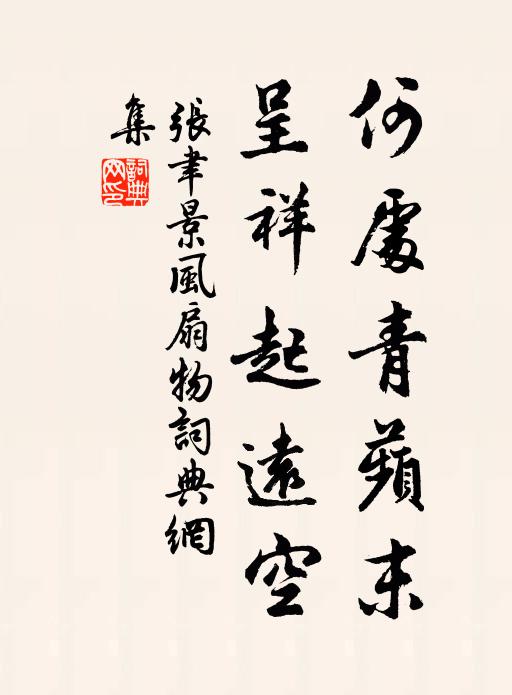 何處青蘋末
呈祥起遠空
張聿景風扇物詞典網
集
詞典網印